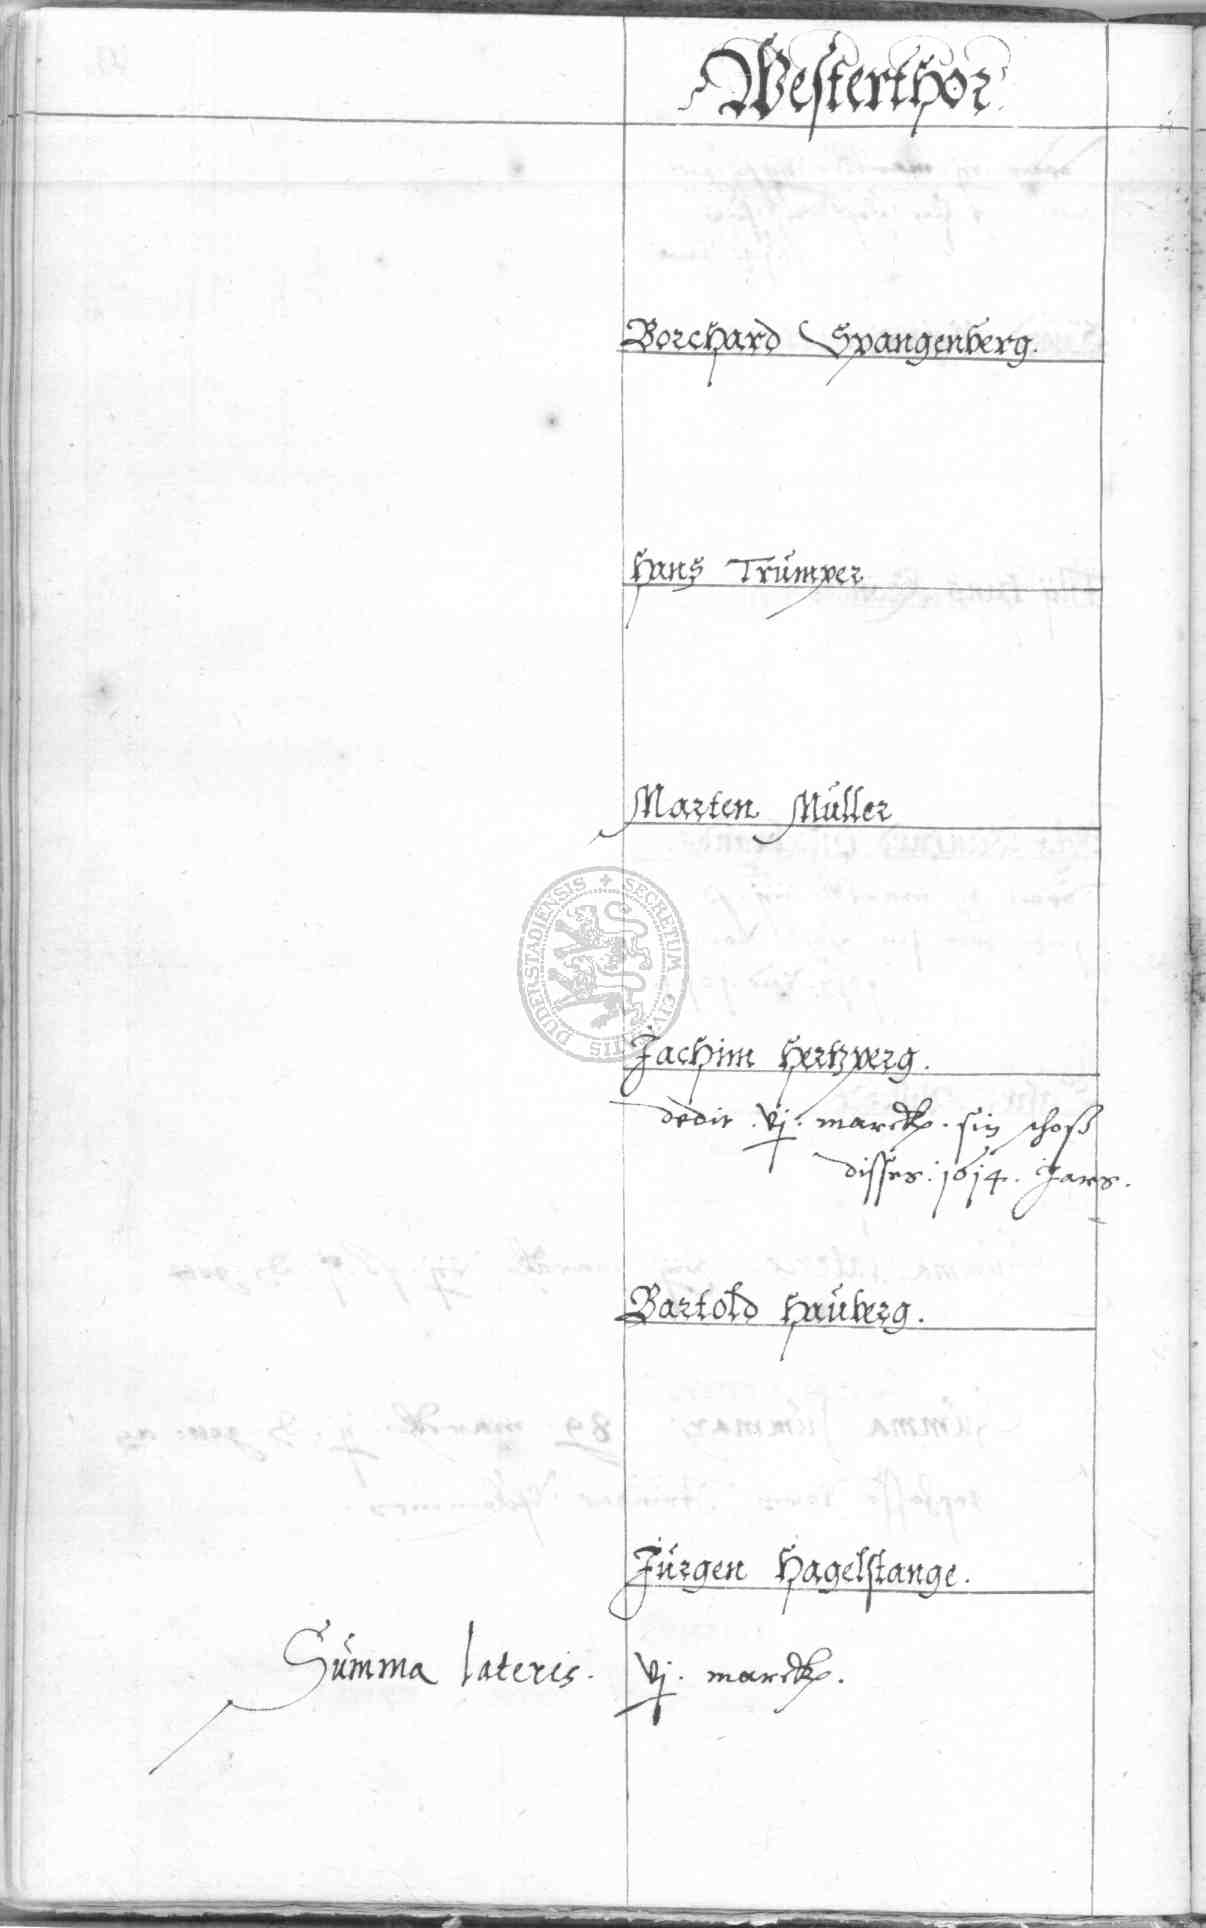 Westerthor
Borchard Spangenberg.
Hans Trümper
Marten Müller
SECRETUM CIVITATIS DUDERSTADIENSIS
Jachim Hertzberg.
dedit. vj. marck. sin schoß
disses. 1614. Jars.
Bartold Hauberg.
Jürgen Hagelstange.
Summa lateris. vj. marck.